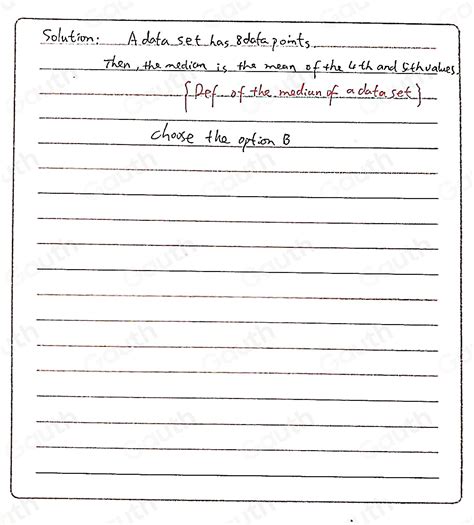 Solution: A data set has 8 data points.
Then, the median is the mean of the 4th and 5th values.
{Def. of the median of a data set}
choose the option B